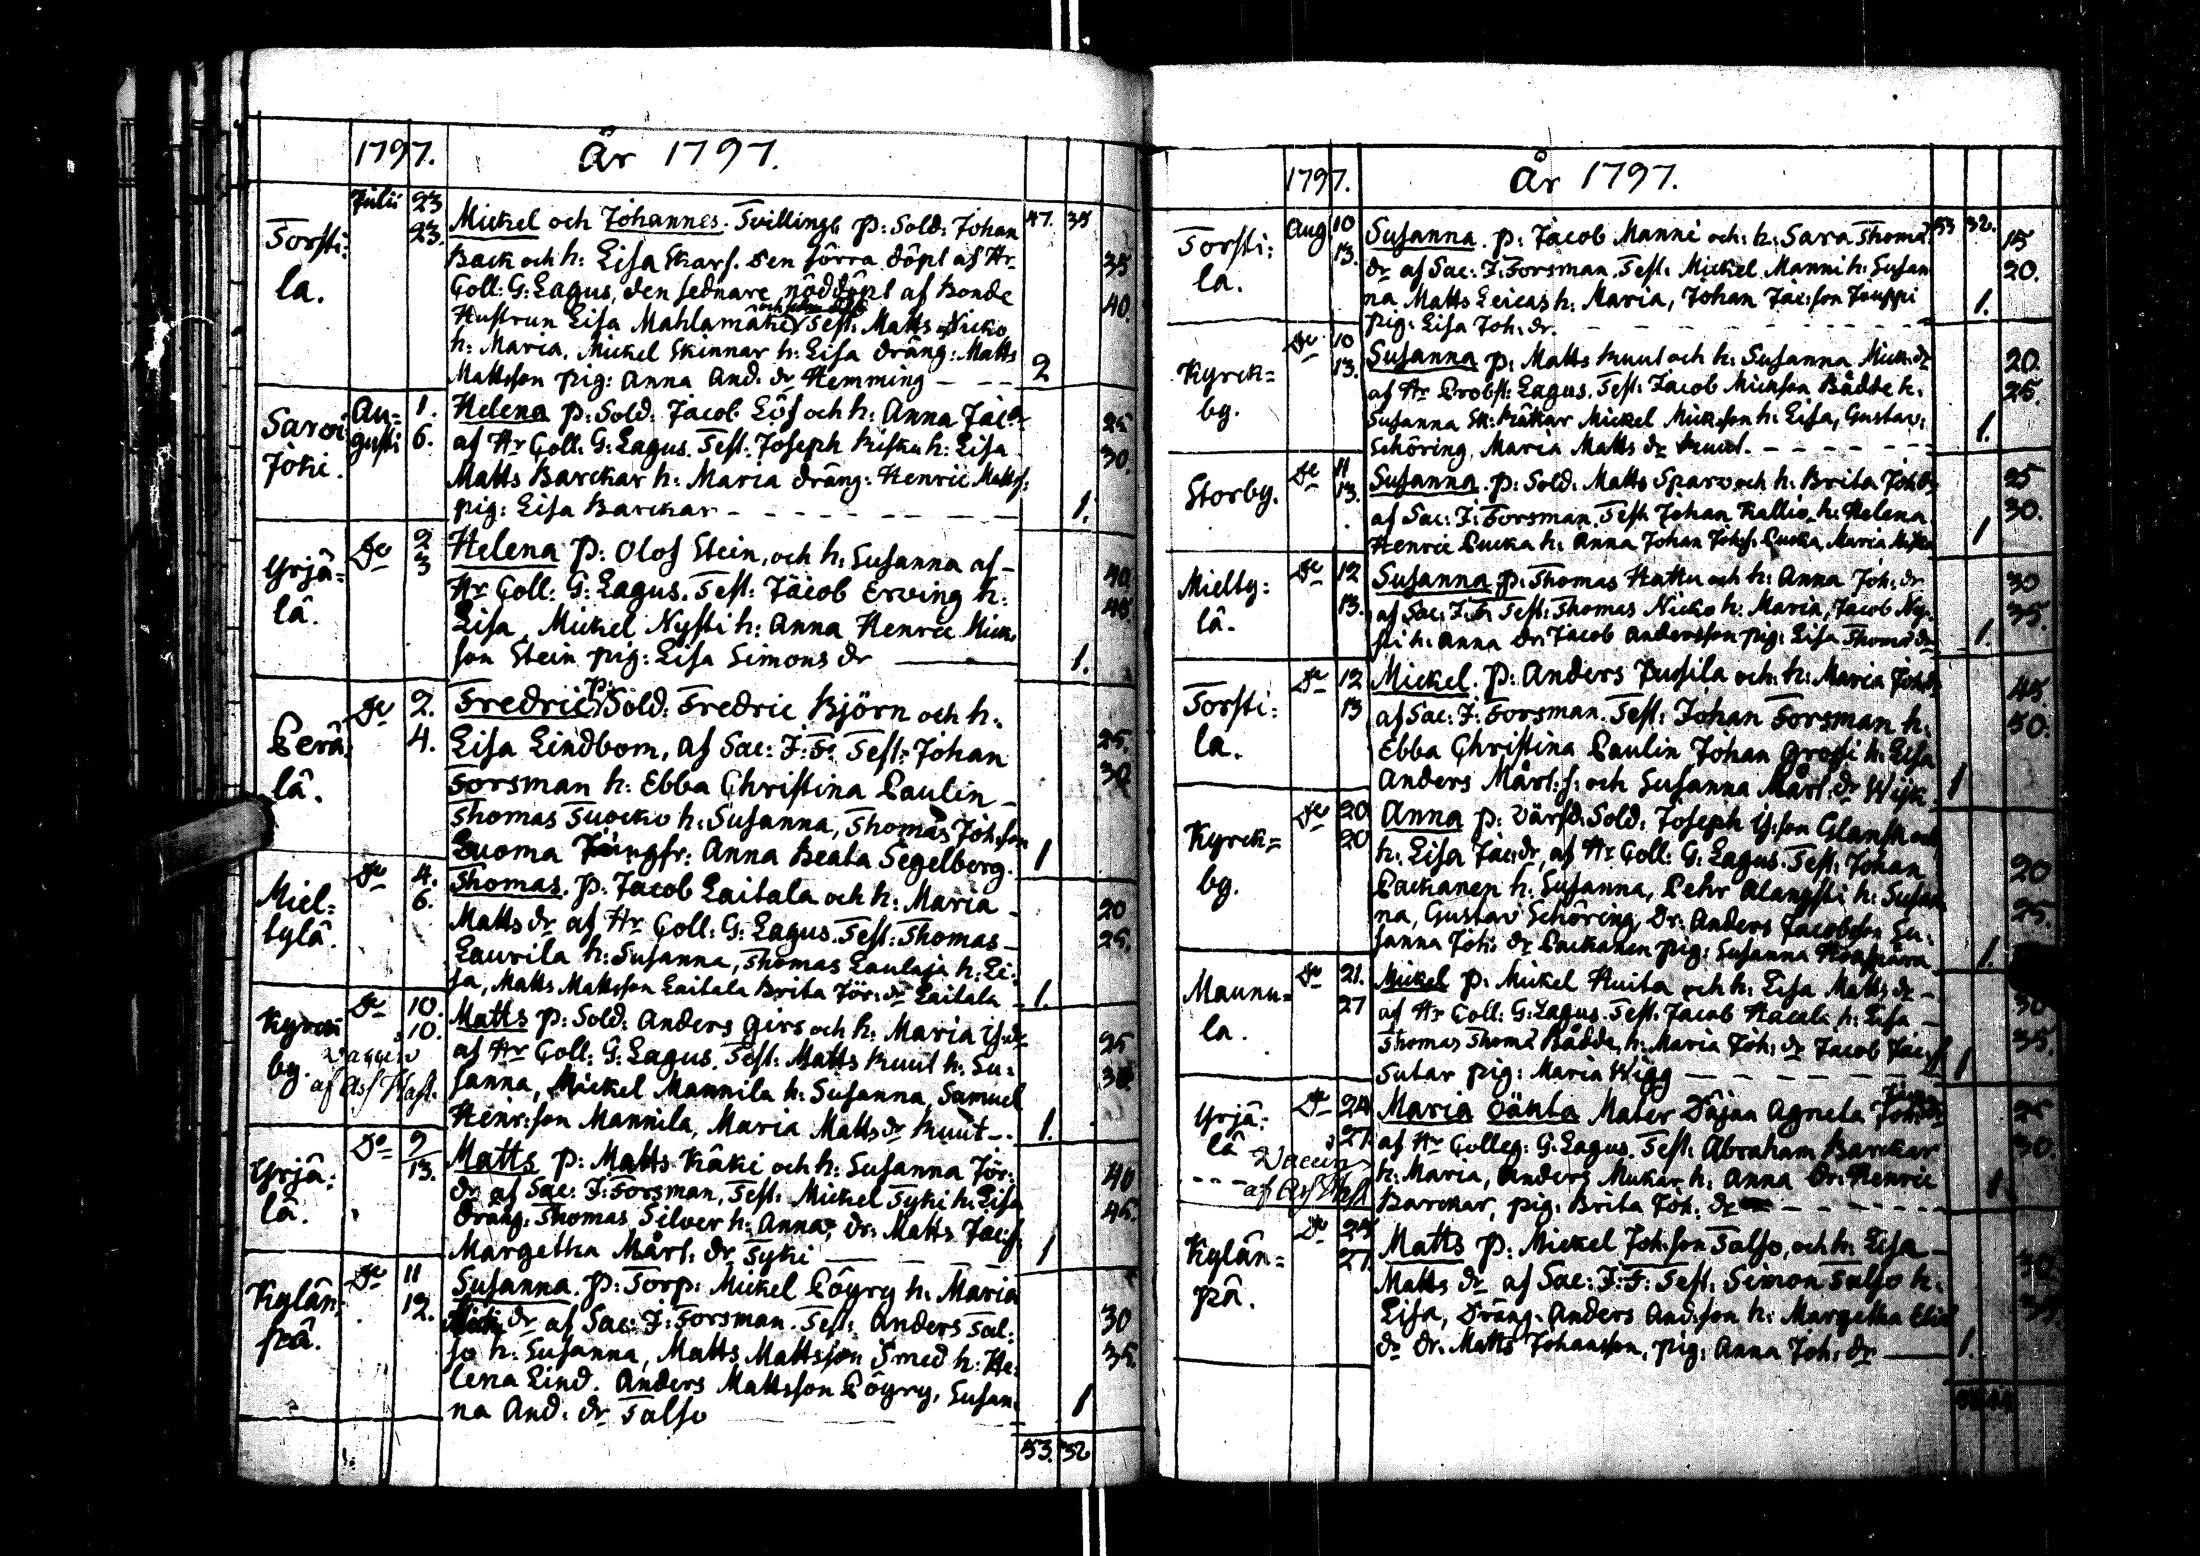 1797. År 1797.
Torsti: la. Julii 23 23. Mickel och Johannes. Tvillingb p: Sold: Johan 47. 35
Back och h: Lisa Skarf. den förra döpt af Hr 35
Coll: G: Lagus, den sednare nöddöpt af Bonde 40.
Hustrun Lisa Mahlamäki Test: Matts Nicko
h: Maria, Mickel Skinnar h: Lisa dräng: Matts
Mattsson pig: Anna And. dr Hemming 2
Sarvi joki. Augusti 1. 6. Helena p: Sold: Jacob Löf och h: Anna Jac: dr 25
af Hr Coll: G: Lagus. Test: Joseph Kisku h: Lisa 30.
Matts Barckar h: Maria dräng: Henric Matts f:
pig: Lisa Barckar 1.
Yrjä= lä. De 2 3 Helena p: Olof Stein, och h: Susanna af 40
Hr Coll: G: Lagus. Test: Jacob Erving h: 45.
Lisa, Mickel Nysti h: Anna Henric Mick
son Stein pig: Lisa Simons dr 1.
Perä: lä. De 2. 4. Fredric p: Sold: Fredric Björn och h: 25.
Lisa Lindbom, af Sac: J: F: Test: Johan 30
Forsman h: Ebba Christina Paulin
Thomas Tuocko h: Susanna, Thomas Joh:son
Luoma Jungfr: Anna Beata Segelberg. 1
Miel: tylä. De 4. 6. Thomas. p: Jacob Laitala och h: Maria 20
Matts dr af Hr Coll: G: Lagus. Test: Thomas 25.
Laurila h: Susanna, Thomas Laulaja h: Li:
sa, Matts Mattsson Laitala Brita Jör: dr Laitala 1.
Kyrck by. De 10. 10. Matts p: Sold: Anders Girs och h: Maria 25
af Hr Coll: G: Lagus. Test: Matts Knut h: Su: 30
sanna, Mickel Mannila h: Susanna, Samuel
Henr:son Mannila, Maria Matts dr Knut 1.
Yrjä: lä. De 9 13. Matts p: Matts Käki och h: Susanna Jör: 40
dr af Sac: J: Forsman, Test: Mickel Tyki h: Lisa 45.
dräng: Thomas Silver h: Anna, dr: Matts Jac:f.
Margetha Mårt: dr Tyki 1
Kylän: pä. De 11 12. Susanna. p: Torp: Mickel Löyry h: Maria 30
Mick dr af Sac: J: Forsman. Test: Anders Tal: 35.
so h: Susanna, Matts Mattsson Smed h: He:
lena Lind. Anders Mattsson Löyry, Susan: 1
na And: dr Talso
53. 32
1797. År 1797.
Torsti: la. Aug 10 13. Susanna. p: Jacob Manni och h: Sara Thoms 53 32. 15
dr af Sac: J: Forsman. Test: Mickel Manni h: Susan 20.
na Matts Leicas h: Maria, Johan Jac:son Jouppi 1.
pig: Lisa Joh: dr.
Kyrck= by. De 10 13. Susanna p: Matts Knut och h: Susanna Mick: dr 20.
af Hr Probst: Lagus. Test: Jacob Mickson Bådde h: 25.
Susanna Sk: Mickel Mick:son h: Lisa, Gustav: 1.
Schöring, Maria Matts dr Knut.
Storby. De 11 13. Susanna. p: Sold: Matts Sparv och h: Brita Joh: dr 25
af Sac: J: Forsman. Test Johan Kallio h: Helena 30.
Henric Pucka h: Anna Johan Joh:f. Pucka, Maria 1
Mielty: lä. De 12 13. Susanna p: Thomas Hattu och h: Anna Joh: dr 30
af Sac: J: F: Test: Thomas Nicko h: Maria, Jacob Ny: 35.
sti h: Anna dr: Jacob Andersson pig: Lisa Thoms dr 1.
Torsti: la. De 12 13 Mickel. p: Anders Pussila och h: Maria Joh: dr 45.
af Sac: J: Forsman. Test: Johan Forsman h: 50.
Ebba Christina Paulin Johan Grossi h: Lisa
Anders Mårt: f: och Susanna Mårt: dr Wijk 1
Kyrck= by. De 20 20 Anna p: Värfd: Sold: Joseph Glansk och
h: Lisa Jac: dr, af Hr Coll: G: Lagus. Test: Johan 20
Packanen h: Susanna, Pehr Alangsti h: Susan 25.
na, Gustav Schöring, dr: Anders Jacobsson Su:
sanna Joh: dr Packanen pig: Susanna 1.
Maunu= la. De 21. 27 Mickel p: Mickel Huita och h: Lisa Matts dr 30
af Hr Coll: G: Lagus. Test: Jacob Hacala h: Lisa 35.
Thomas Thoms Bådde, h: Maria Joh: dr Jacob Jac:f
Sutar pig: Maria Wigg 1
Yrjä: lä De 24 27 Maria Oäkta Mater Däjan Agneta dr 25
af Hr Colleg: G: Lagus. Test: Abraham Barckar 30.
h: Maria, Anders Muckar h: Anna Dr: Henric
Barckar, pig: Brita Joh: dr 1.
Kylän= pä. De 25 27 Matts p: Mickel Joh:son Talso, och h: Lisa 30.
Matts dr af Sac: J: F: Test: Simon Talso h: 35.
Lisa, Dräng: Anders And:son h: Margetha
dr dr: Matts Johansson, pig: Anna Joh: dr 1.